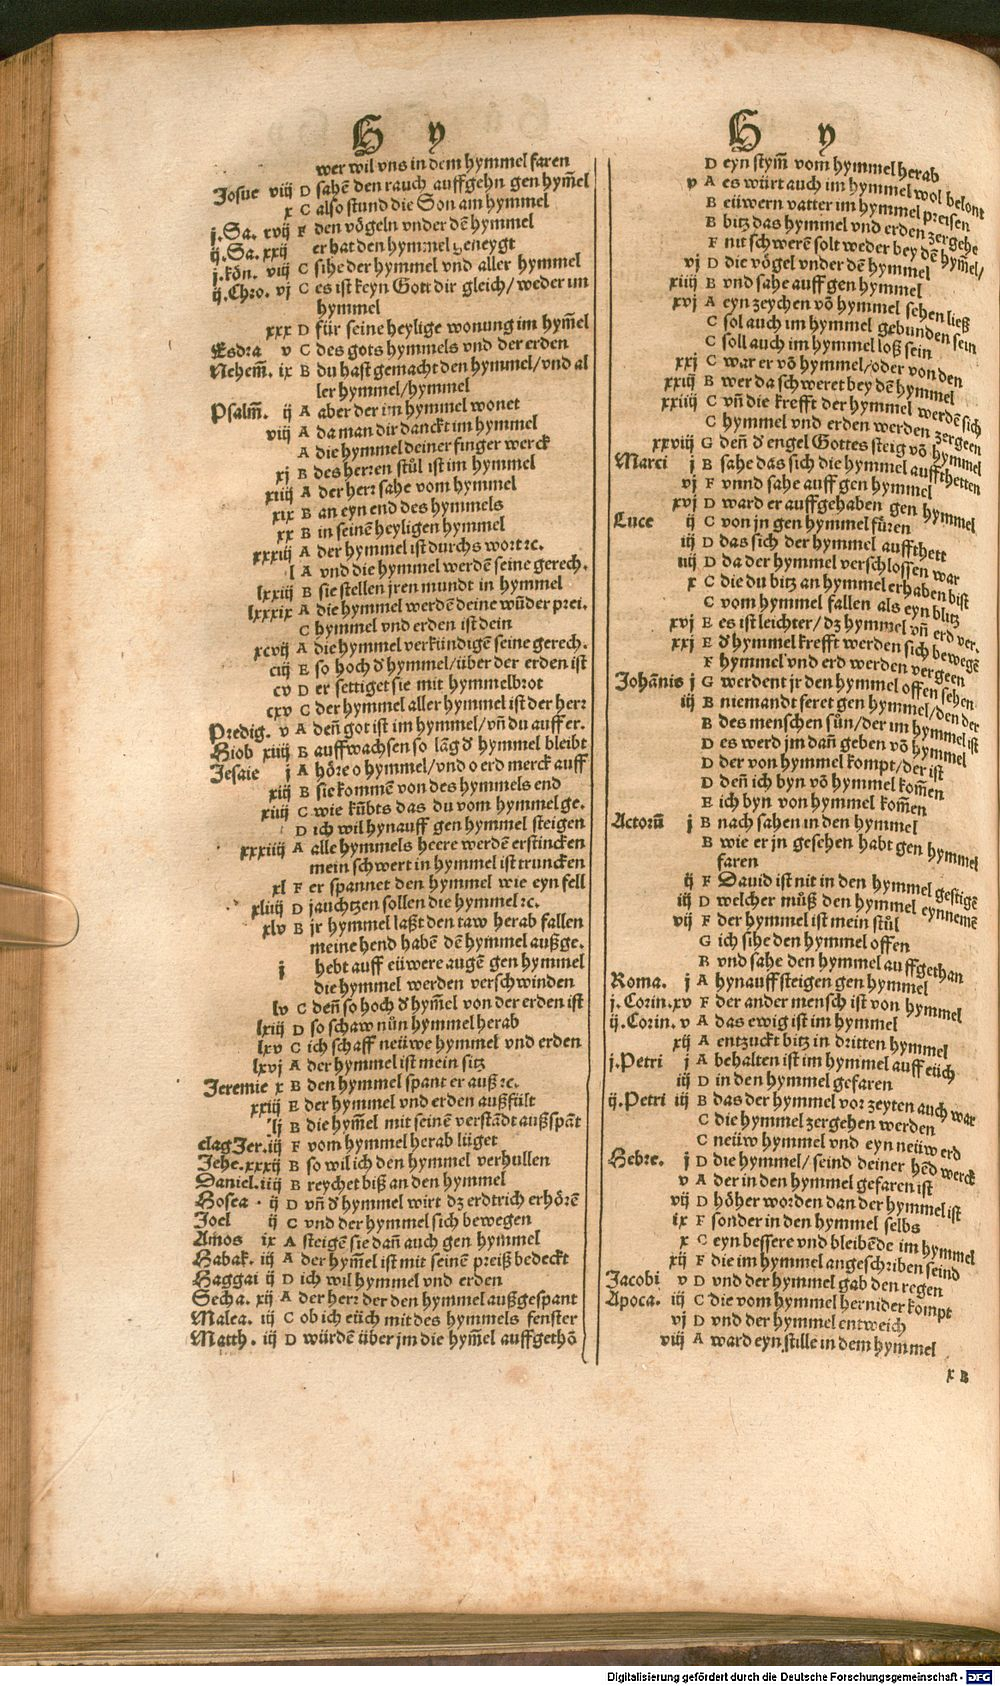 H y
wer wil vns in dem hymmel faren
Josue viij D sahē den rauch auffgehn gen hym̄el
x C also stund die Son am hymmel
j.Sa. xvij F den vögeln vnder dē hymmel
ij.Sa. xxij er hat den hymmel geneygt
j.kön. viij C sihe der hymmel vnd aller hymmel
ij.Chro. vj C es ist keyn Gott dir gleich/ weder im
hymmel
xxx D für seine heylige wonung im hym̄el
Esdra v C des gots hymmels vnd der erden
Nehem̄. ix B du hast gemacht den hymmel/vnd al
ler hymmel/hymmel
Psalm̄. ij A aber der im hymmel wonet
viij A da man dir danckt im hymmel
A die hymmel deiner finger werck
xj B des herren stůl ist im hymmel
xiij A der herr sahe vom hymmel
xix B an eyn end des hymmels
xx B in seinē heyligen hymmel
xxxiij A der hymmel ist durchs wort ꝛc.
l A vnd die hymmel werdē seine gerech.
lxxiij B sie stellen jren mundt in hymmel
lxxxix A die hymmel werdē deine wūder prei.
C hymmel vnd erden ist dein
xcvij A die hymmel verkündigē seine gerech.
ciij E so hoch d̓ hymmel/über der erden ist
cv D er settiget sie mit hymmelbrot
cxv C der hymmel aller hymmel ist der herr
Predig. v A den̄ got ist im hymmel/vn̄ du auff er.
Hiob xiiij B auffwachsen so lāg d̓ hymmel bleibt
Jesaie j A höre o hymmel/vnd o erd merck auff
xiij B sie kommē von des hymmels end
xiiij C wie kūbts das du vom hymmel ge.
D ich wil hynauff gen hymmel steigen
xxxiiij A alle hymmels heere werdē erstincken
mein schwert in hymmel ist truncken
xl F er spannet den hymmel wie eyn fell
xliiij D jauchtzen sollen die hymmel ꝛc.
xlv B jr hymmel laßt den taw herab fallen
meine hend habē dē hymmel außge.
j hebt auff eüwere augē gen hymmel
die hymmel werden verschwinden
lv C den̄ so hoch d̓ hym̄el von der erden ist
lxiij D so schaw nůn hymmel herab
lxv C ich schaff neüwe hymmel vnd erden
lxvj A der hymmel ist mein sitz
Jeremie x B den hymmel spant er auß ꝛc.
xxiij E der hymmel vnd erden außfült
lj B die hym̄el mit seinē verstādt außspāt
clag Jer.iij F vom hymmel herab lüget
Jehe.xxxij B so wil ich den hymmel verhullen
Daniel.iiij B reychet biß an den hymmel
Hosea . ij D vn̄ d̓ hymmel wirt dz erdtrich erhörē
Joel ij C vnd der hymmel sich bewegen
Amos ix A steigē sie dan̄ auch gen hymmel
Habak. iij A der hym̄el ist mit seinē preiß bedeckt
Haggai ij D ich wil hymmel vnd erden
Secha. xij A der herr der den hymmel außgespant
Malea. iij C ob ich eüch mit des hymmels fenster
Matth. iij D würdē über jm die hym̄el auffgethō
H y
D eyn stym̄ vom hymmel herab
v A es würt auch im hymmel wol belont
B eüwern vatter im hymmel preisen
B bitz das hymmel vnd erden zergehe
F nit schwerē solt weder bey dē hym̄el/
vj D die vögel vnder dē hymmel
xiiij B vnd sahe auff gen hymmel
xvj A eyn zeychen vō hymmel sehen ließ
C sol auch im hymmel gebunden sein
C soll auch im hymmel loß sein
xxj C war er vō hymmel/oder von den
xxiij B wer da schweret bey dē hymmel
xxiiij C vn̄ die krefft der hymmel werdē sich
C hymmel vnd erden werden zergeen
xxviij G den̄ d̓ engel Gottes steig vō hymmel
Marci j B sahe das sich die hymmel auffthetten
vj F vnnd sahe auff gen hymmel
xvj D ward er auffgehaben gen hymmel
Luce ij C von jn gen hymmel fůren
iij D das sich der hymmel auffthett
iiij D da der hymmel verschlossen war
x C die du bitz an hymmel erhaben bist
C vom hymmel fallen als eyn blitz
xvj E es ist leichter/ dz hymmel vn̄ erd ver.
xxj E d̓ hymmel krefft werden sich bewegē
F hymmel vnd erd werden vergeen
Johānis j G werdent jr den hymmel offen sehen
iij B niemandt feret gen hymmel/den der
B des menschen sůn/der im hymmel ist
D es werd jm dan̄ geben vō hymmel
D der von hymmel kompt/der ist
D den̄ ich byn vō hymmel kom̄en
E ich byn von hymmel kom̄en
Actorū j B nach sahen in den hymmel
B wie er jn gesehen habt gen hymmel
faren
ij F Dauid ist nit in den hymmel gestigē
iij D welcher můß den hymmel eynnemē
vij F der hymmel ist mein stůl
G ich sihe den hymmel offen
B vnd sahe den hymmel auffgethan
Roma. j A hynauff steigen gen hymmel
j.Corin.xv F der ander mensch ist von hymmel
ij.Corin. v A das ewig ist im hymmel
xij A entzuckt bitz in dritten hymmel
j.Petri j A behalten ist im hymmel auff eüch
iij D in den hymmel gefaren
ij.Petri iij B das der hymmel vor zeyten auch war
C die hymmel zergehen werden
C neüw hymmel vnd eyn neüw erd
Hebre. j D die hymmel/ seind deiner hēd werck
v A der in den hymmel gefaren ist
vij D höher worden dan der hymmel ist
ix F sonder in den hymmel selbs
x C eyn bessere vnd bleibēde im hymmel
xij F die im hymmel angeschriben seind
Jacobi v D vnd der hymmel gab den regen
Apoca. iij C die vom hymmel hernider kompt
vj D vnd der hymmel entweich
viij A ward eyn stille in dem hymmel
x B
Digitalisierung gefördert durch die Deutsche Forschungsgemeinschaft - DFG